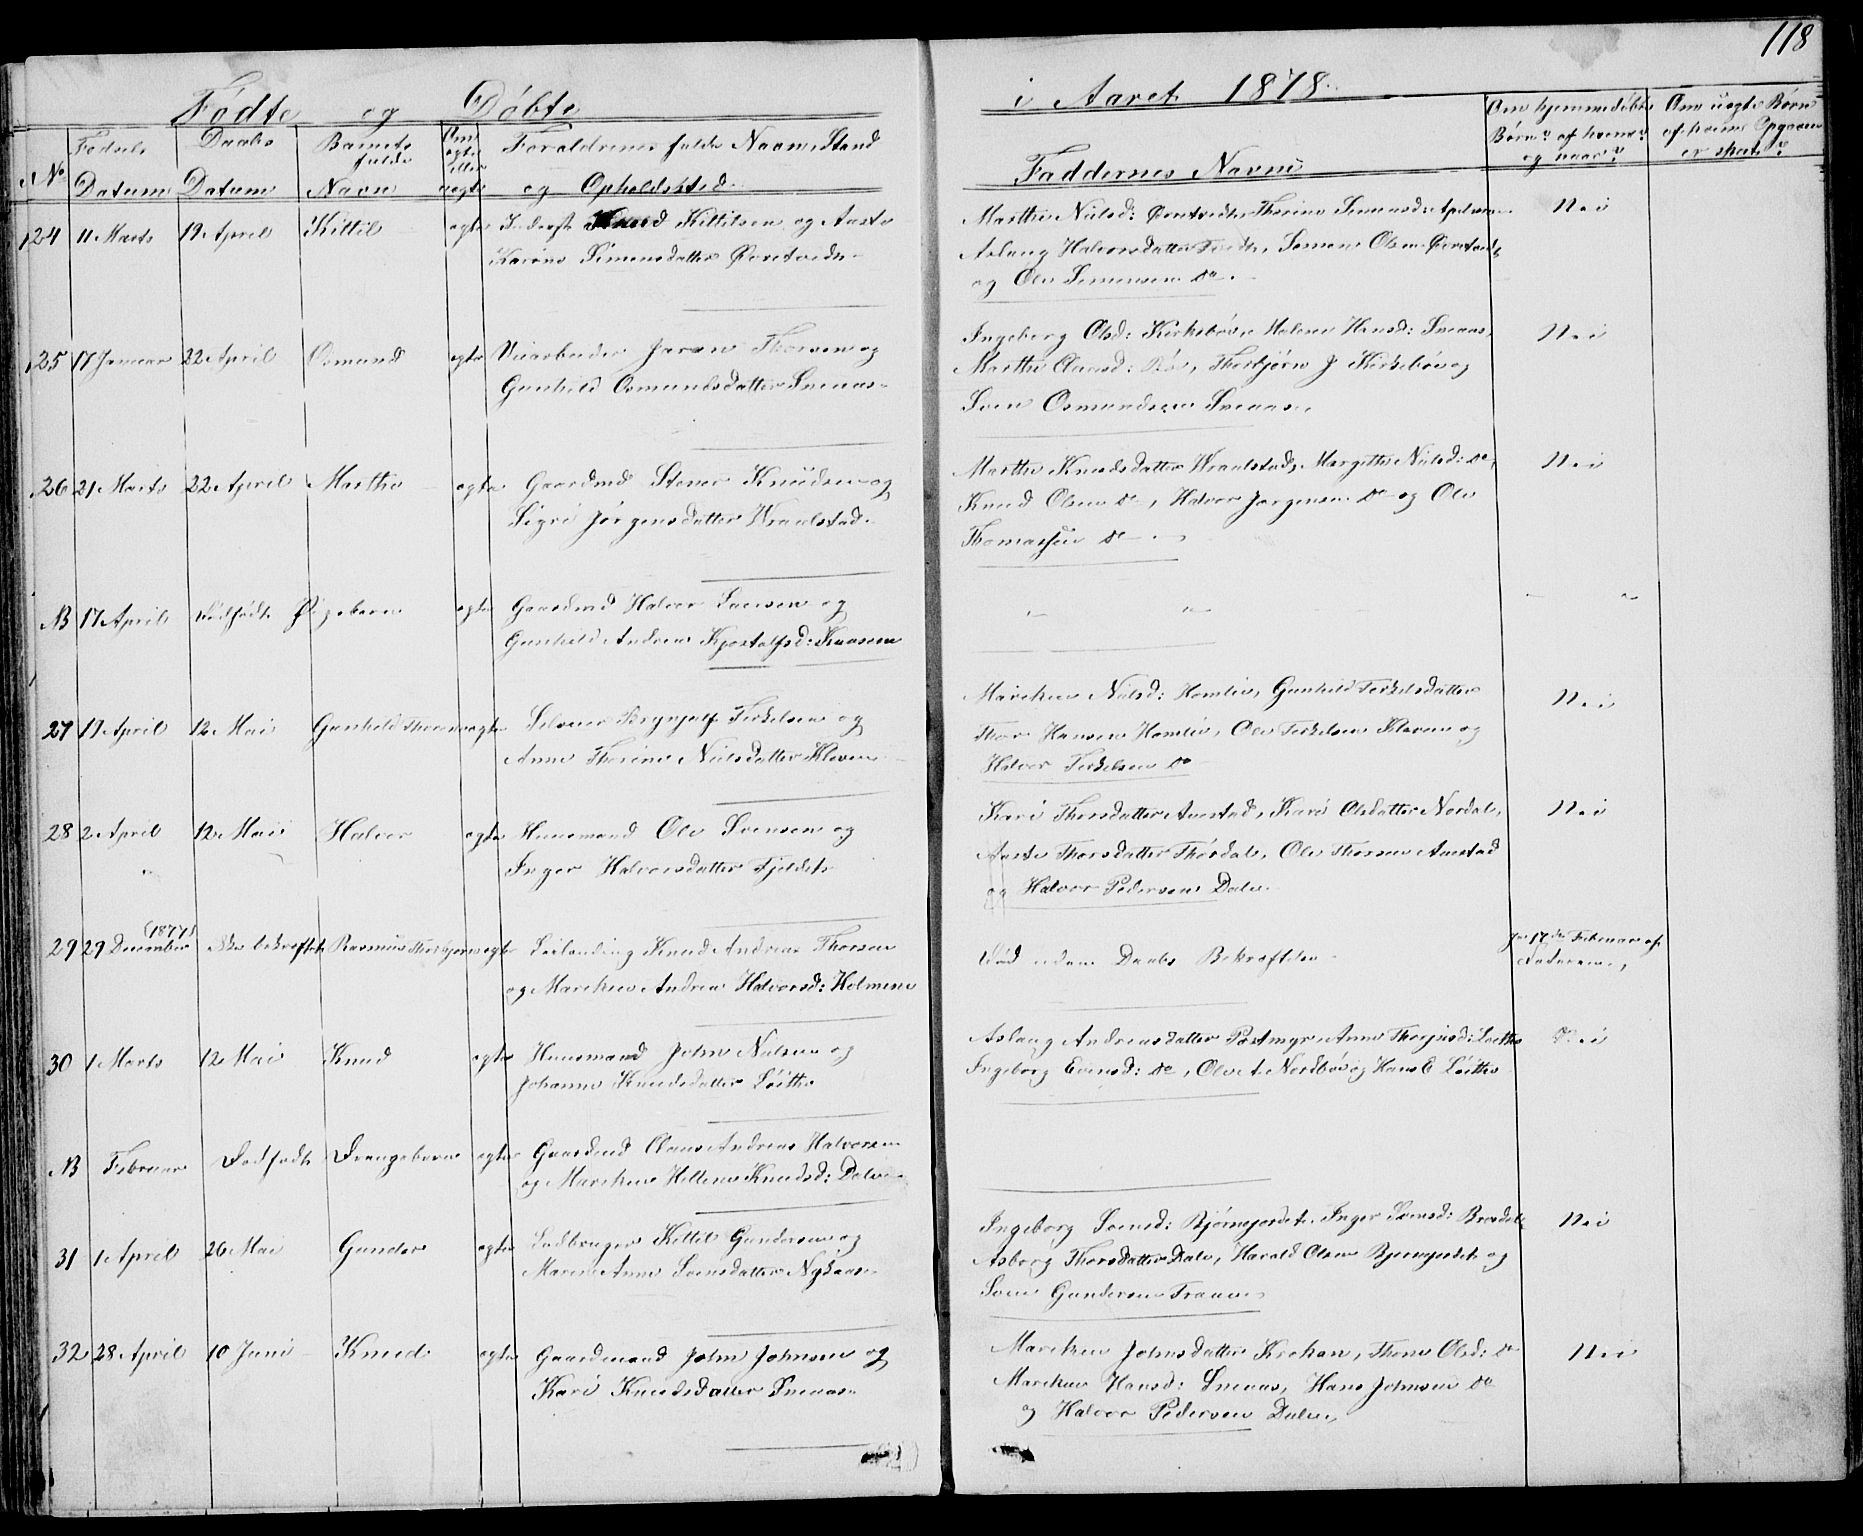 118
Fødte og Døbte
i Aaret 1878.
No
Fødsels Datum
Daabs Datum
Barnets fulde Navn
Om ægte eller uægte
Forældrenes fulde Navn, Stand
og Opholdsted
Faddernes Navne
Om hjemmedøbte
Børn? af hvem?
og naar?
Om uægte Børn
af hvem Opgaven
er skeet?
124 11 Marts 19 April Kittil ægte Knud Kittilsen og Aaste
Simonsdatter
Marthe Nielsd: Thorine Simonsd:
Aslaug Halvorsdatter Simon Olsen
og Ole Simonsen do.
Nei
125 17 Januar 22 April Osmund ægte Jaran Thorsen og
Gunhild Osmundsdatter Snaas
Ingeborg Olsd: Kirkebøe, Malene Hansd: Snaas,
Marthe Clausd: Thorbjørn J Kirkebøe og
Sven Osmundsen Snaas.
Nei
26 21 Marts 22 April Marthe ægte Gaardmd Stener Knudsen og
Sigri Jørgensdatter Vraalstad
Marthe Knudsdatter Vraalstad, Margithe Nielsd: do,
Knud Olsen do, Halvor Jørgensen do og Ole
Thomassen do
Nei
NB 17 April Dødfødt Pigebarn ægte Gaardmd Halvor og
Gunhild Andrea Kjostolfsd: Kaasene
" "
" "
27 17 April 12 Mai Gunhild Thorine ægte Selveier Brynjulf Terkelsen og
Anne Thorine Nielsdatter Kleven
Maren Nielsd: Homlie, Gunhild Terkelsdatter
Thor Hansen Homlie, Ole Terkelsen Kleven og
Halvor Terkelsen do
Nei
28 2 April 12 Mai Halvor ægte Huusmand Ole Svensen og
Inger Halvorsdatter Fjeldet
Kari Thorsdatter Aanstad, Kari Olsdatter Nordal,
Aaste Thorsdatter Thordal, Ole Thorsen Aanstad
og Halvor Pedersen Dale.
Nei
(1877)
29 29 December Ikke bekræftet Rasmus Thorbjørn ægte Leilending Knud Andreas Thorsen
og Maren Andrea Halvorsd: Holmene
Død uden Daabs Bekræftelse
Ja 17de Februar af
Faderen,
30 1 Marts 12 Mai Knud ægte Huusmand John Nielsen og
Johanne Knudsdatter Løithe
Aslaug Andreasdatter Postmyr, Anne Thorjusd: Løithe
Ingeborg Evensd: do, Ole A. Nordbøe og Hans E Løithe
Nei
NB Februar Dødfødt Drengebarn ægte Gaardmd Claus Andreas Halvorsen
og Maren Hellene Knudsd: Dale
31 1 April 26 Mai Gunder ægte Kittil Gundersen og
Maren Anne Svensdatter Nykaas
Ingeborg Svensd: Bjørnejordet, Inger Svensd:
Asborg Thorsdatter Dale, Harald Olsen Bjørnejordet og
Sven Gundersen Traane
Nei
32 28 April 10 Juni Knud ægte Gaardmand John Johnsen og
Kari Knudsdatter Snaas
Maren Johnsdatter Krokan, Thone Olsd: do
Maren Hansd: Snaas, Hans Johnsen do
og Halvor Pedersen Dale,
Nei